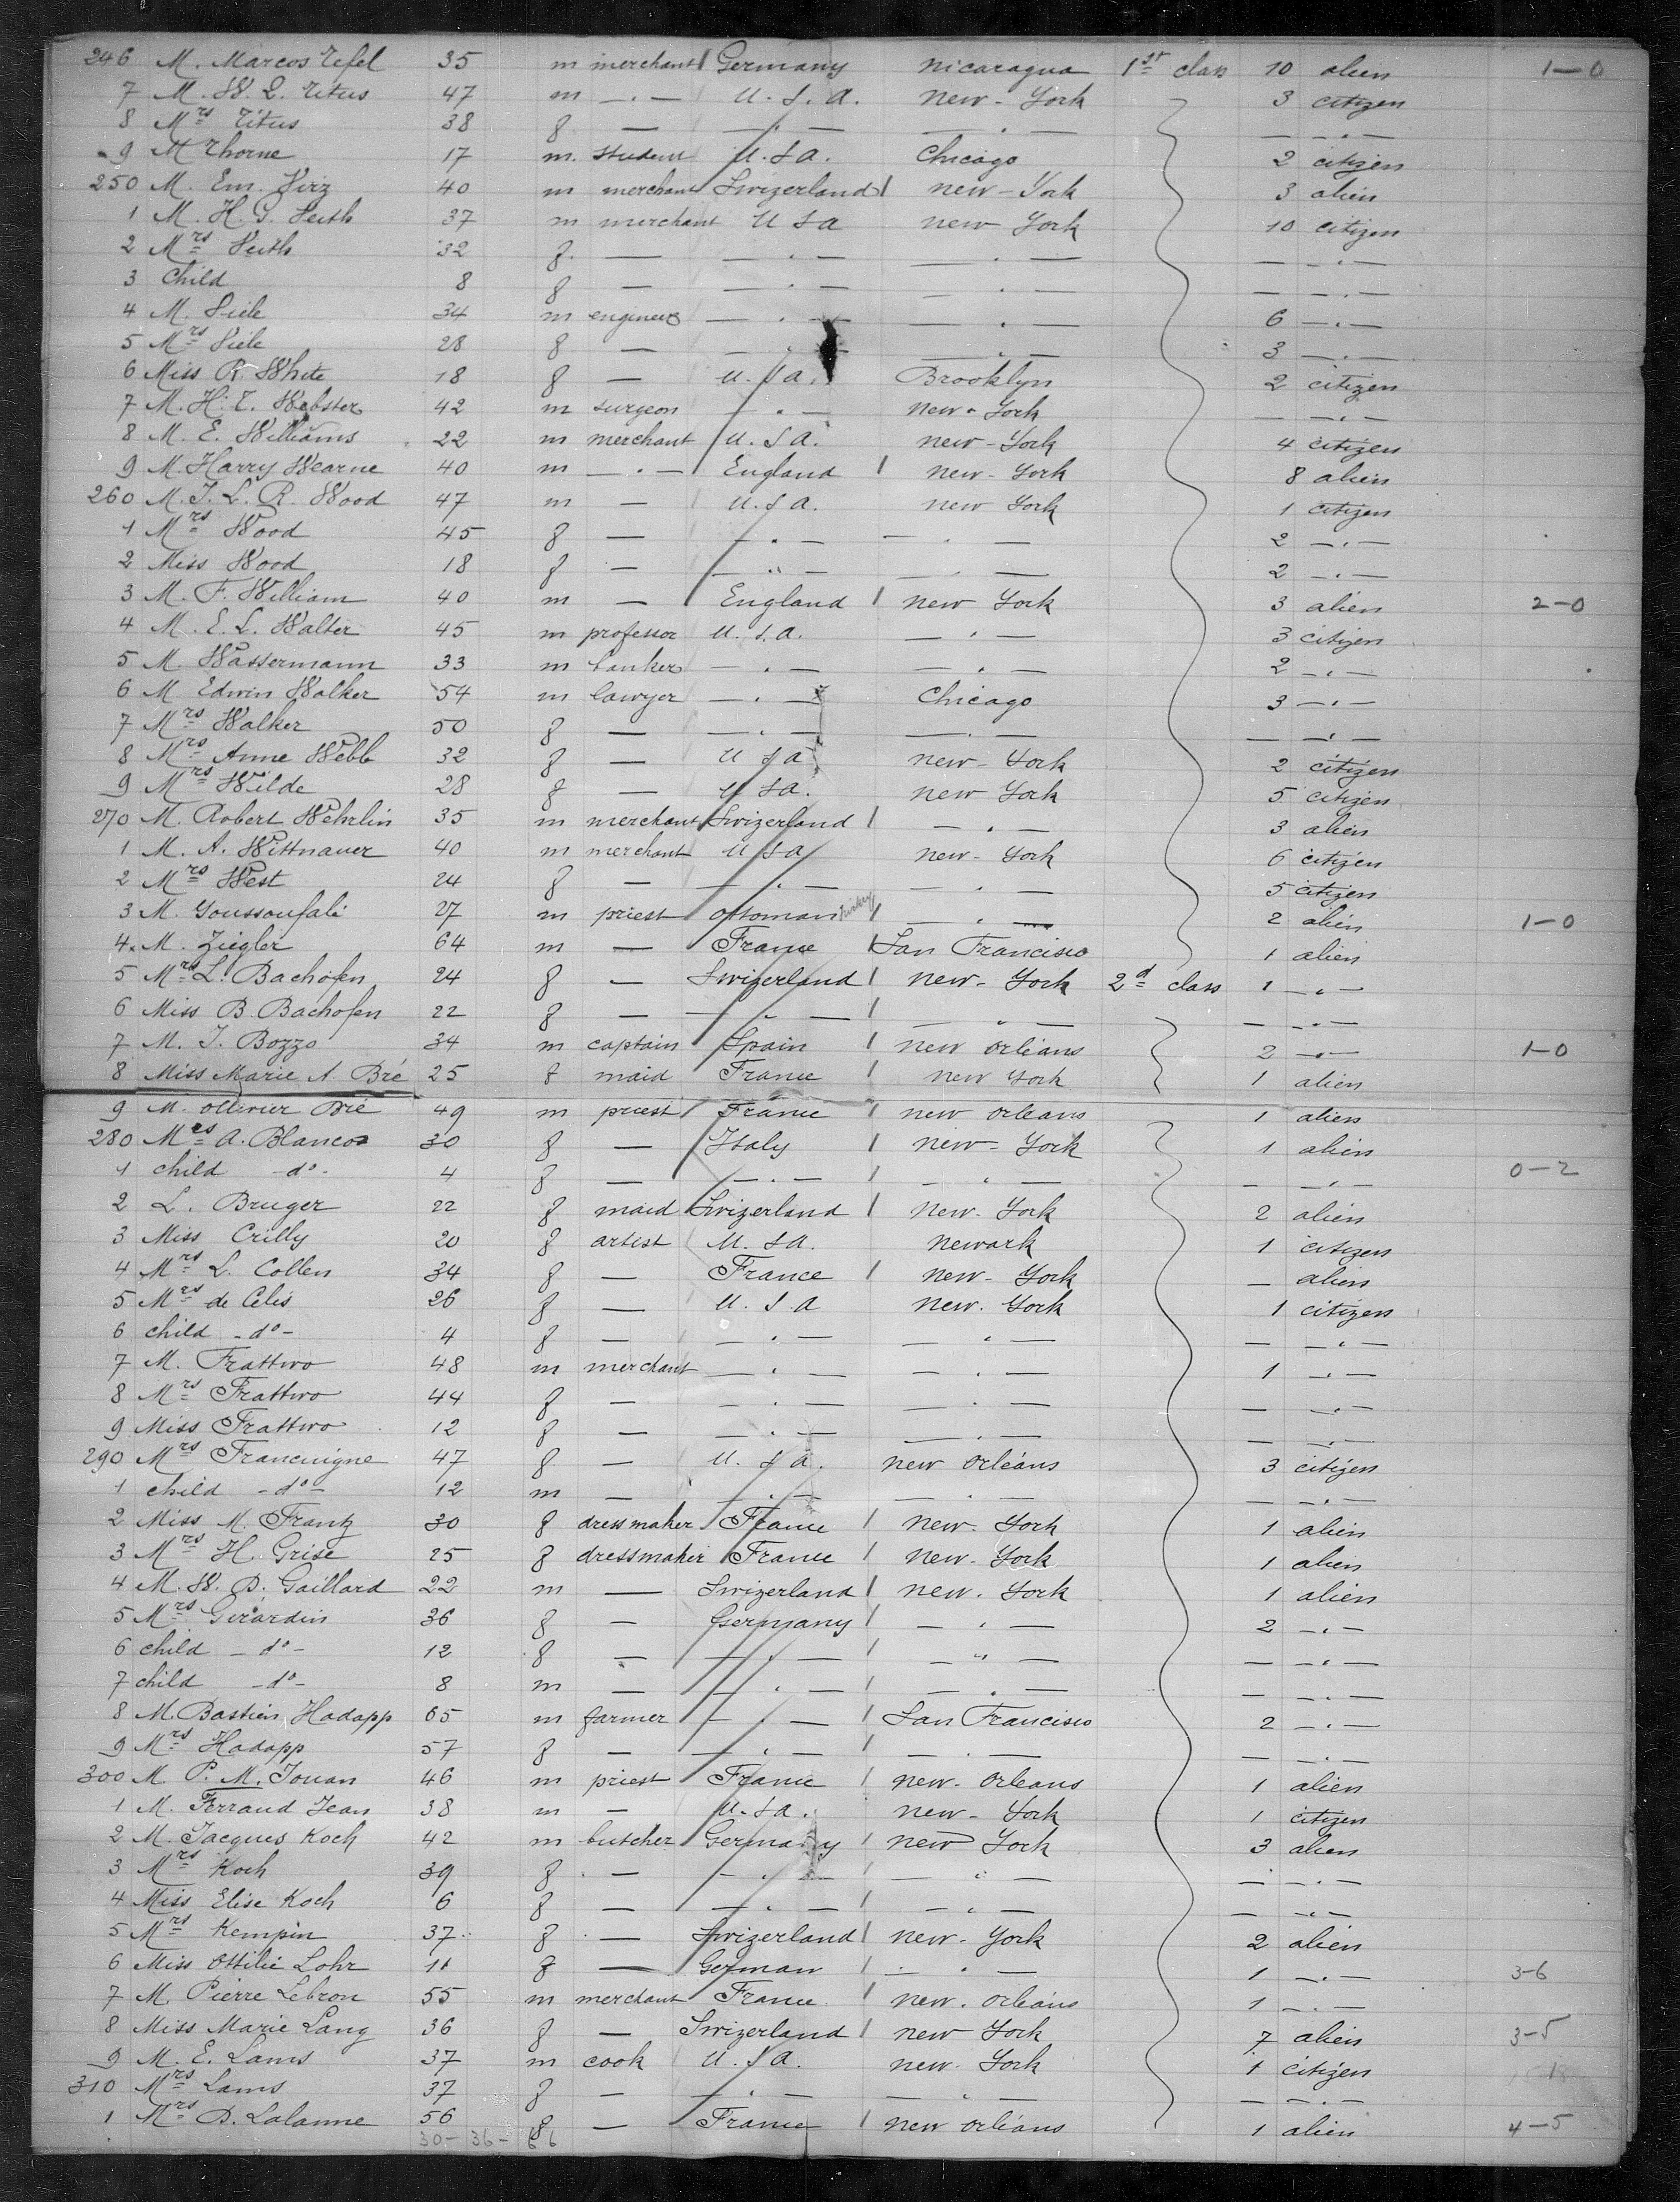 246 M. Marcos Tefel 35 m merchant Germany Nicaragua 1st class 10 alien 1—0
7 M. W. L. Titus 47 m —.— U.S.A. New-York 3 citizen
8 Mrs Titus 38 f — —.— —.— — —.—
9 M Thorne 17 m. student U.S.A. Chicago 2 citizen
250 M. Em. 40 m merchant Swizerland New-York 3 alien
1 M. H. G. 37 m merchant U S A New York 10 citizen
2 Mrs 32 f. — —.— —.— — —.—
3 Child 8 f — —.— —.— — —.—
4 M. 34 m engineer —.— —.— 6 —.—
5 Mrs 28 f — —.— —.— 3 —.—
6 Miss R. White 18 f — U.S.A. Brooklyn 2 citizen
7 M. H. T. Webster 42 m surgeon —.— New-York — —.—
8 M. E. Williams 22 m merchant U.S.A. New-York 4 citizen
9 M. Harry Wearne 40 m —.— England New-York 8 alien
260 M. J. L. R. Wood 47 m — U.S.A. New York 1 citizen
1 Mrs Wood 45 f — —.— —.— 2 —.—
2 Miss Wood 18 f — —.— —.— 2 —.—
3 M. F. William 40 m — England New York 3 alien 2—0
4 M. E. L. Walter 45 m professor U.S.A. —.— 3 citizen
5 M. Wassermann 33 m banker —.— —.— 2 —.—
6 M Edwin Walker 54 m lawyer —.— Chicago 3 —.—
7 Mrs Walker 50 f — —.— —.— — —.—
8 Mrs Anne Webb 32 f — U S A New-York 2 citizen
9 Mrs Wilde 28 f — U S A. New York 5 citizen
270 M. Robert Wehrlin 35 m merchant Swizerland —.— 3 alien
1 M. A. Wittnauer 40 m merchant U S A New-York 6 citizen
2 Mrs West 24 f — —.— —.— 5 citizen
3 M. Youssoufali 27 m priest ottoman Turkey —.— 2 alien 1—0
4. M. Ziegler 64 m — France San Francisco 1 alien
5 Mrs L. Bachofen 24 f — Swizerland New-York 2d class 1 —.—
6 Miss B. Bachofen 22 f — —.— —.— — —.—
7 M. J. Bozzo 34 m captain Spain New Orléans 2 —.— 1—0
8 Miss Marie A Bré 25 f maid France New York 1 alien
9 M. Ollivier Bré 49 m priest France New Orleans 1 alien
280 Mrs A. Blancos 30 f — Italy New-York 1 alien
1 child -do- 4 f — —.— —.— — —.— 0—2
2 L. Bruger 22 f maid Swizerland New-York 2 alien
3 Miss Crilly 20 f artist U.S.A. Newark 1 citizen
4 Mrs L. Collen 34 f — France New-York — alien
5 Mrs de Célis 26 f — U.S.A New.York 1 citizen
6 child -do- 4 f — —.— —.— — —.—
7 M. Frattwo 48 m merchant —.— —.— 1 —.—
8 Mrs Frattwo 44 f — —.— —.— — —.—
9 Miss Frattwo 12 f — —.— —.— — —.—
290 Mrs Francuigne 47 f — U.S.A. New Orléans 3 citizen
1 child -do- 12 m — —.— —.— — —.—
2 Miss M. Frantz 30 f dressmaker France New-York 1 alien
3 Mrs H. Grise 25 f dressmaker France New-York 1 alien
4 M. W. D. Gaillard 22 m — Swizerland New.York 1 alien
5 Mrs Girardin 36 f — Germany —.— 2 —.—
6 child -do- 12 f — —.— —.— — —.—
7 child -do- 8 m — —.— —.— — —.—
8 M Bastien Hadapp 65 m farmer —.— San Francisco 2 —.—
9 Mrs Hadapp 57 f — —.— —.— — —.—
300 M. P. M. Jouan 46 m priest France New-Orleans 1 alien
1 M. Ferraud Jean 38 m — U.S.A. New-York 1 citizen
2 M. Jacques Koch 42 m butcher Germany New York 3 alien
3 Mrs Koch 39 f — —.— —.— — —.—
4 Miss Elise Koch 6 f — —.— —.— — —.—
5 Mrs Kempin 37 f — Swizerland New-York 2 alien
6 Miss Ottilie Lohr 11 f — German —.— 1 —.— 3-6
7 M. Pierre Lebron 55 m merchant France New.Orléans 1 —.—
8 Miss Marie Lang 36 f — Swizerland New York 7 alien 3-5
9 M. E. Lams 37 m cook U.S.A. New-York 1 citizen
310 Mrs Lams 37 f — —.— —.— — —.—
1 Mrs D. Lalanne 56 f — France New Orléans 1 alien 4-5
30-36-66